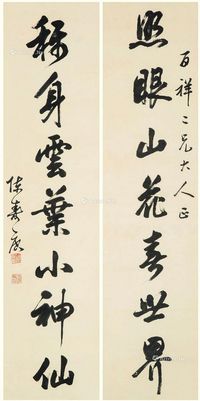 百祥二兄大人正
照眼山花春世界
稱身雲葉小神仙
陳壽